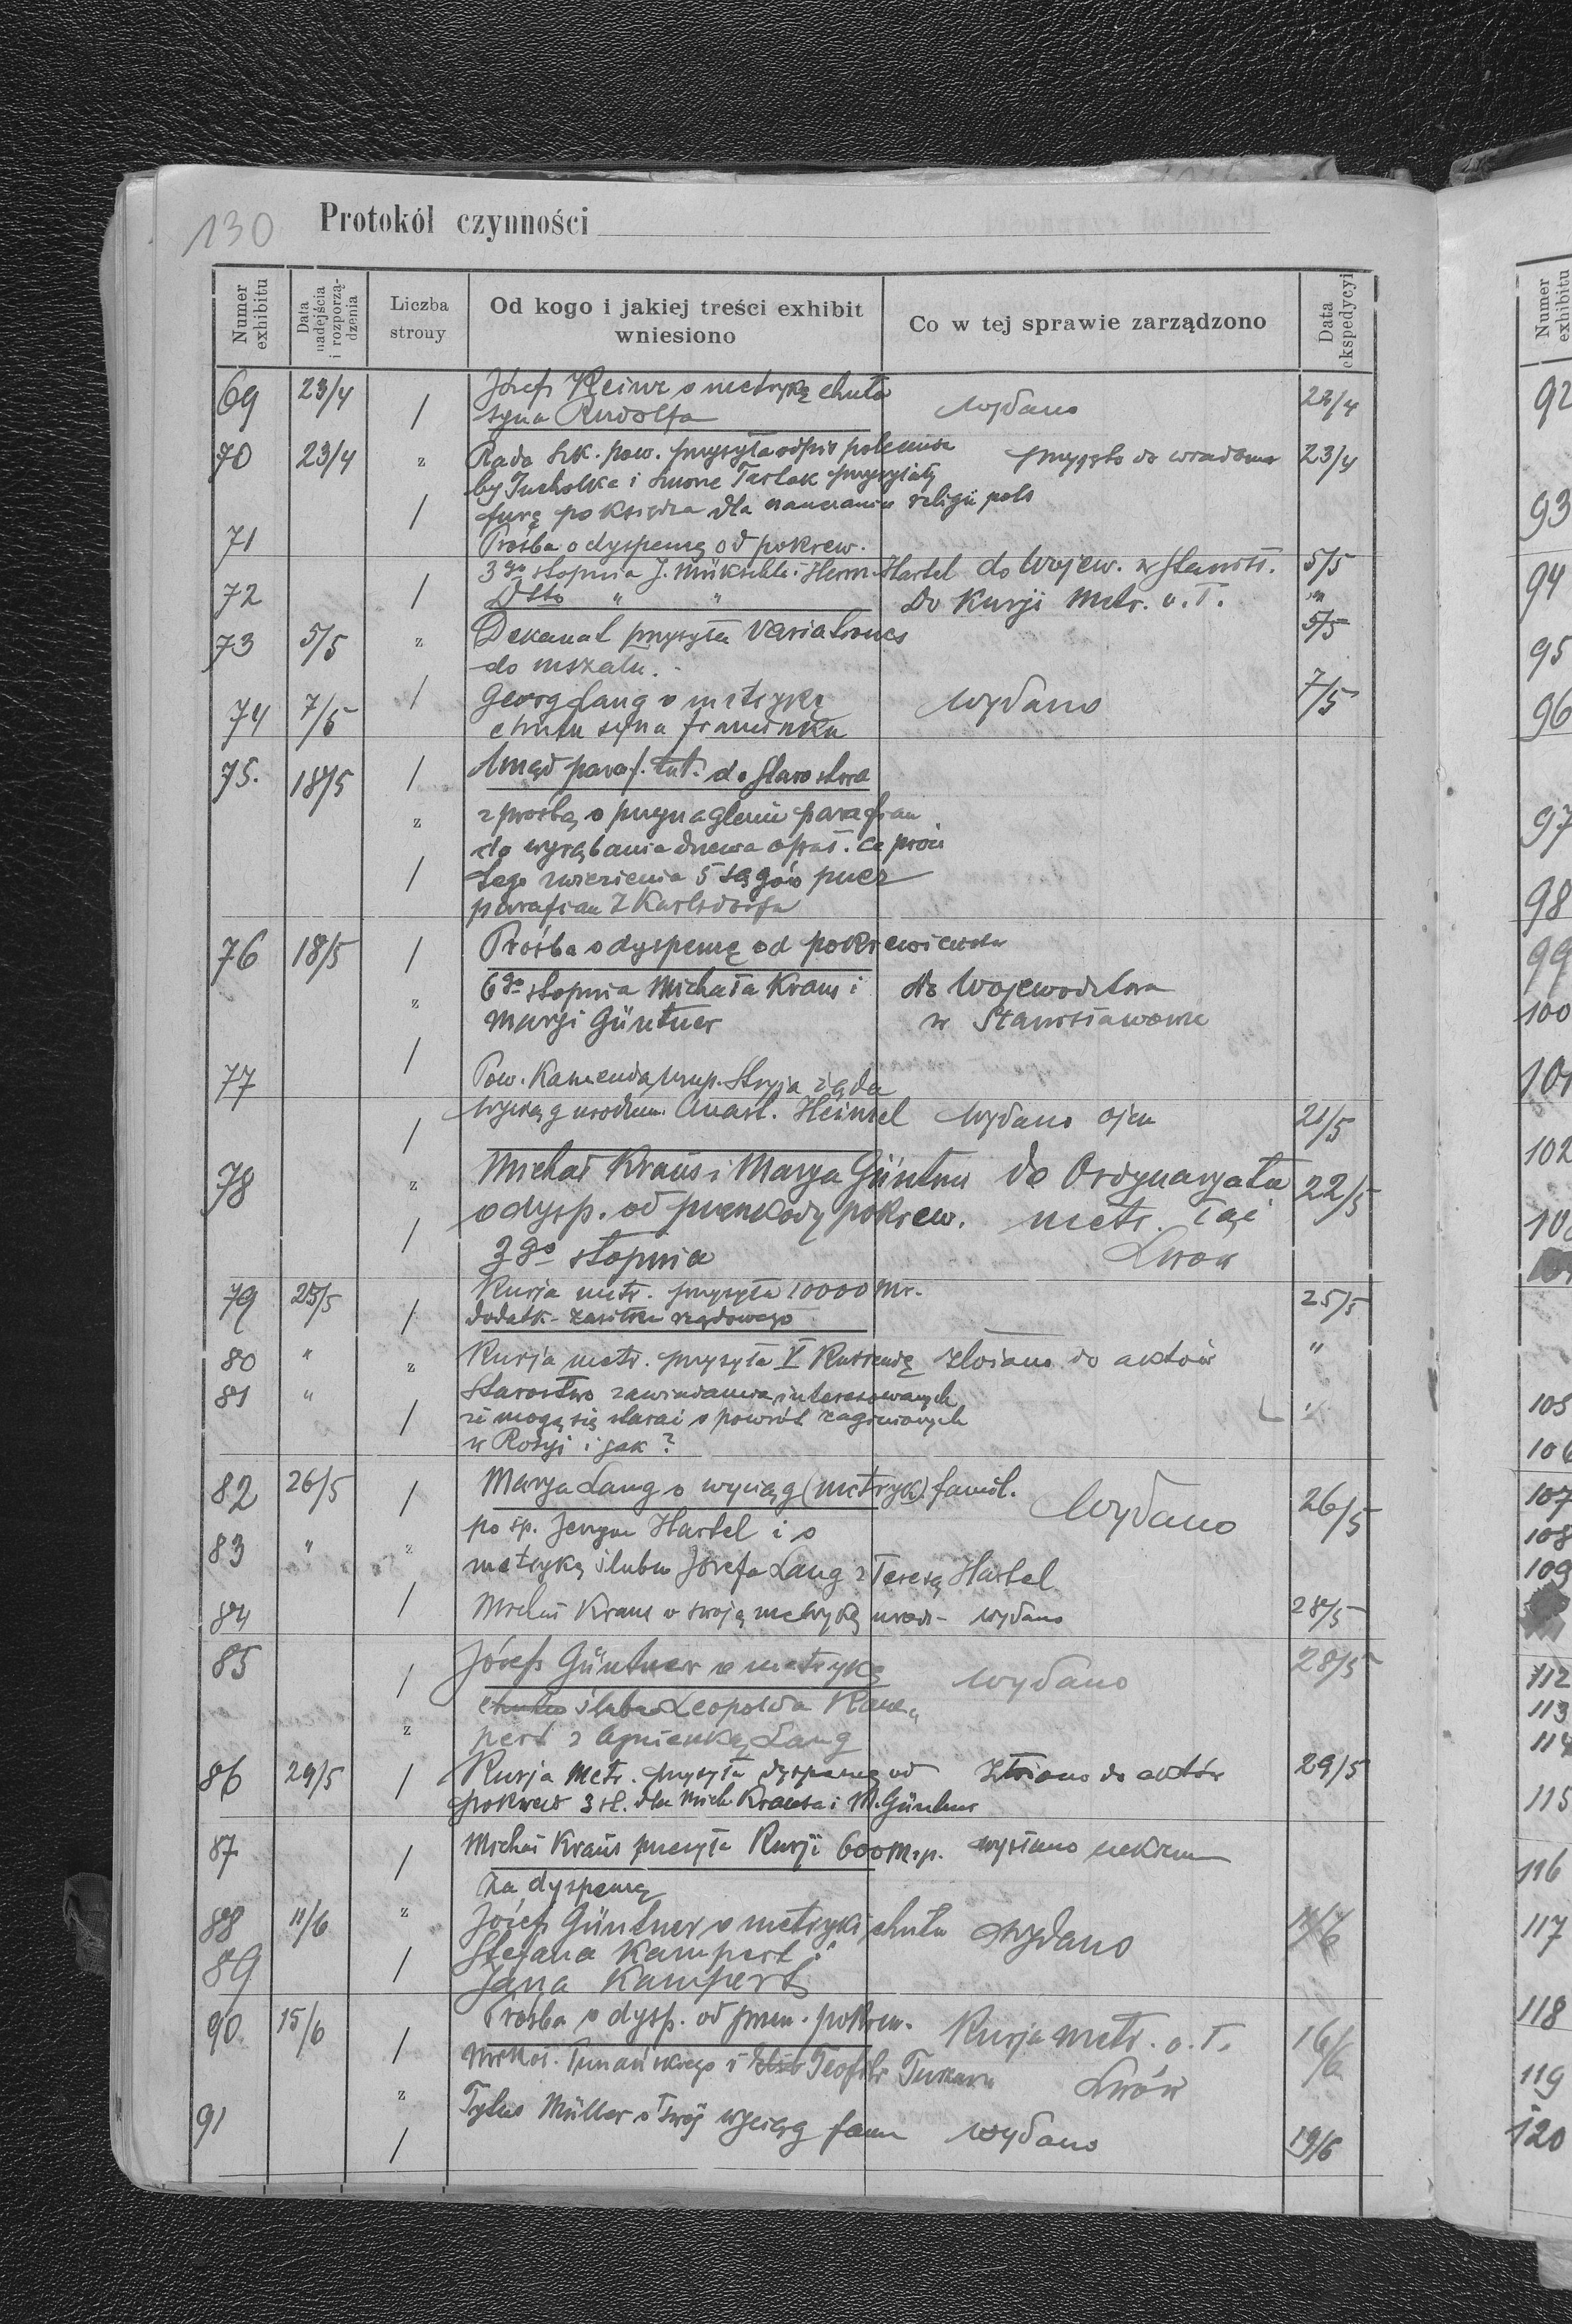 130 Protokół czynności
Numer exhibitu
Data nadejścia i rozporządzenia
Liczba strony
Od kogo i jakiej treści exhibit wniesiono
Co w tej sprawie zarządzono
Data ekspedycyi
69 23/4 / Józef Heinz o metrykę chrztu wydano 23/4
syna Rudolfa
70 23/4 z Rada szk. pow. przysyła odpis polecenia przyjęto do wiadom 23/4
by i Tartak przysyłały
/ furę po księdza dla nauczania religii
71 Prośba o dyspensę od pokrew.
3go stopnia J. i Herm. Hartel do Wojew. w Stanisł. 5/5
72 / Dtto " " Do Kurji Metr. o. ł. "
73 5/5 z Dekanat przysyła Variationes 5/5
do mszału.
74 7/5 / Georg Lang o metrykę wydano 7/5
chrztu syna Franciszka
75. 18/5 / Urząd paraf. tut. do Starostwa
z z prośbą o przynaglenie parafian
do wyrąbania drzewa opał. i
/ tego zwiezienia 5 sągów przez
parafian z Karlsdorfu
76 18/5 / Prośba o dyspensę od pokrewieństwa
z 6go stopnia Michała Kraus i do Województwa
Maryi Güntner w Stanisławowie
77 / Pow. Komenda uzup. Stryja żąda
/ wyciągu urodzen. Heinzel wydano ojcu 21/5
78 z Michał Kraus i Marya Güntner do Ordynaryatu 22/5
/ o dysp. od przeszkody pokrew. metr. łać
3go stopnia Lwow
79 25/5 / Kurja metr. przysyła 10000 Mr. 25/5
dodatk. zasiłku rządowego
80 " z Kurja metr. przysyła V Kurendę złożono do aktów "
81 " Starostwo zawiadamia interesowanych "
/ że mogą się starać o powrót zaginionych
w Rosyi i jak?
82 26/5 / Marya Lang o wyciąg (metryk) famil. Wydano 26/5
po śp. Hartel i o
83 " z metrykę ślubu Józefa Lang z Teresą Hartel
84 / Michał Kraus o swoją metrykę urodz. wydano 28/5
85 / Józef Güntner o metrykę wydano 28/5
chrztu ślubu Leopolda Kam-
z pert z Agnieszką Lang
86 29/5 / Kurja Metr. przysyła dyspensę od złożono do aktów 29/5
pokrew 3 st. dla Mich. Krausa i M. Güntner
87 / Michał Kraus przesyła Kurji 600 M.p. wysłano czekiem
za dyspensę
88 11/6 z Józef Güntner o metryki chrztu wydano 11/6
89 / Stefana Kampert i
Jana Kampert
90 15/6 / Prośba o dysp. od przesz. pokrew. Kurja metr. o. ł. 16/6
Teofili Lwów
91 z Tytus Müller o swój wyciąg fam wydano 19/6
/
Numer exhibitu
92
93
94
95
96
97
98
99
100
101
102
105
106
107
108
109
112
113
114
115
116
117
118
119
120